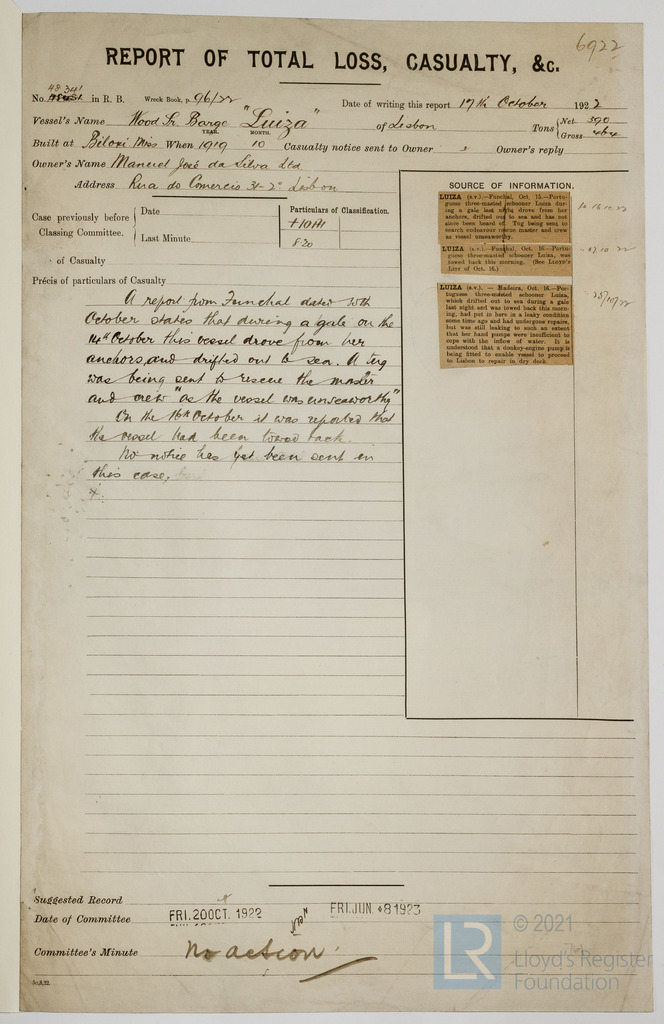 6922
REPORT OF TOTAL LOSS, CASUALTY, &c.
No. 48341 in R. B. Wreck Book, p. 96/22 Date of writing this report 17th October 1922
Vessel's Name Wood Sr. Barge "Luiza" of Lisbon Tons { Net 590
Gross
YEAR. MONTH.
Built at Biloxi Miss When 1919 10 Casualty notice sent to Owner Owner's reply
Owner's Name Manuel José da Silva Ltd
Address Rua do Comercio 31-2° Lisbon
Case previously before Classing Committee. { Date
Last Minute
Particulars of Classification.
+10A1
8.20
of Casualty
Précis of particulars of Casualty
A report from Funchal dated 15th
October states that during a gale on the
14th October this vessel drove from her
anchors, and drifted out to sea. A tug
was being sent to rescue the master
and crew "as the vessel was unseaworthy"
On the 16th October it was reported that
the vessel had been towed back.
No notice has yet been sent in
this case.
SOURCE OF INFORMATION.
LUIZA (s.v.).—Funchal, Oct. 15.—Portu-
guese three-masted schooner Luiza dur-
ing a gale last night drove from her
anchors, drifted out to sea and has not
since been heard of. Tug being sent to
search endeavour rescue master and crew
as vessel unseaworthy.
LUIZA (s.v.).—Funchal, Oct. 16.—Portu-
guese three-masted schooner Luiza, was
towed back this morning. (See LLOYD'S
LIST of Oct. 16.)
LUIZA (s.v.).—Madeira, Oct. 16.—Por-
tuguese three-masted schooner Luiza,
which drifted out to sea during a gale
last night and was towed back this morn-
ing, had put in here in a leaky condition
some time ago and had undergone repairs,
but was still leaking to such an extent
that her hand pumps were insufficient to
cope with the inflow of water. It is
understood that a donkey-engine pump is
being fitted to enable vessel to proceed
to Lisbon to repair in dry dock.
16.10.22
25/10/22
Suggested Record
Date of Committee FRI. 20 OCT. 1922 FRI. JUN. 8 1923
Committee's Minute No action.
© 2021
LR Lloyd's Register
Foundation